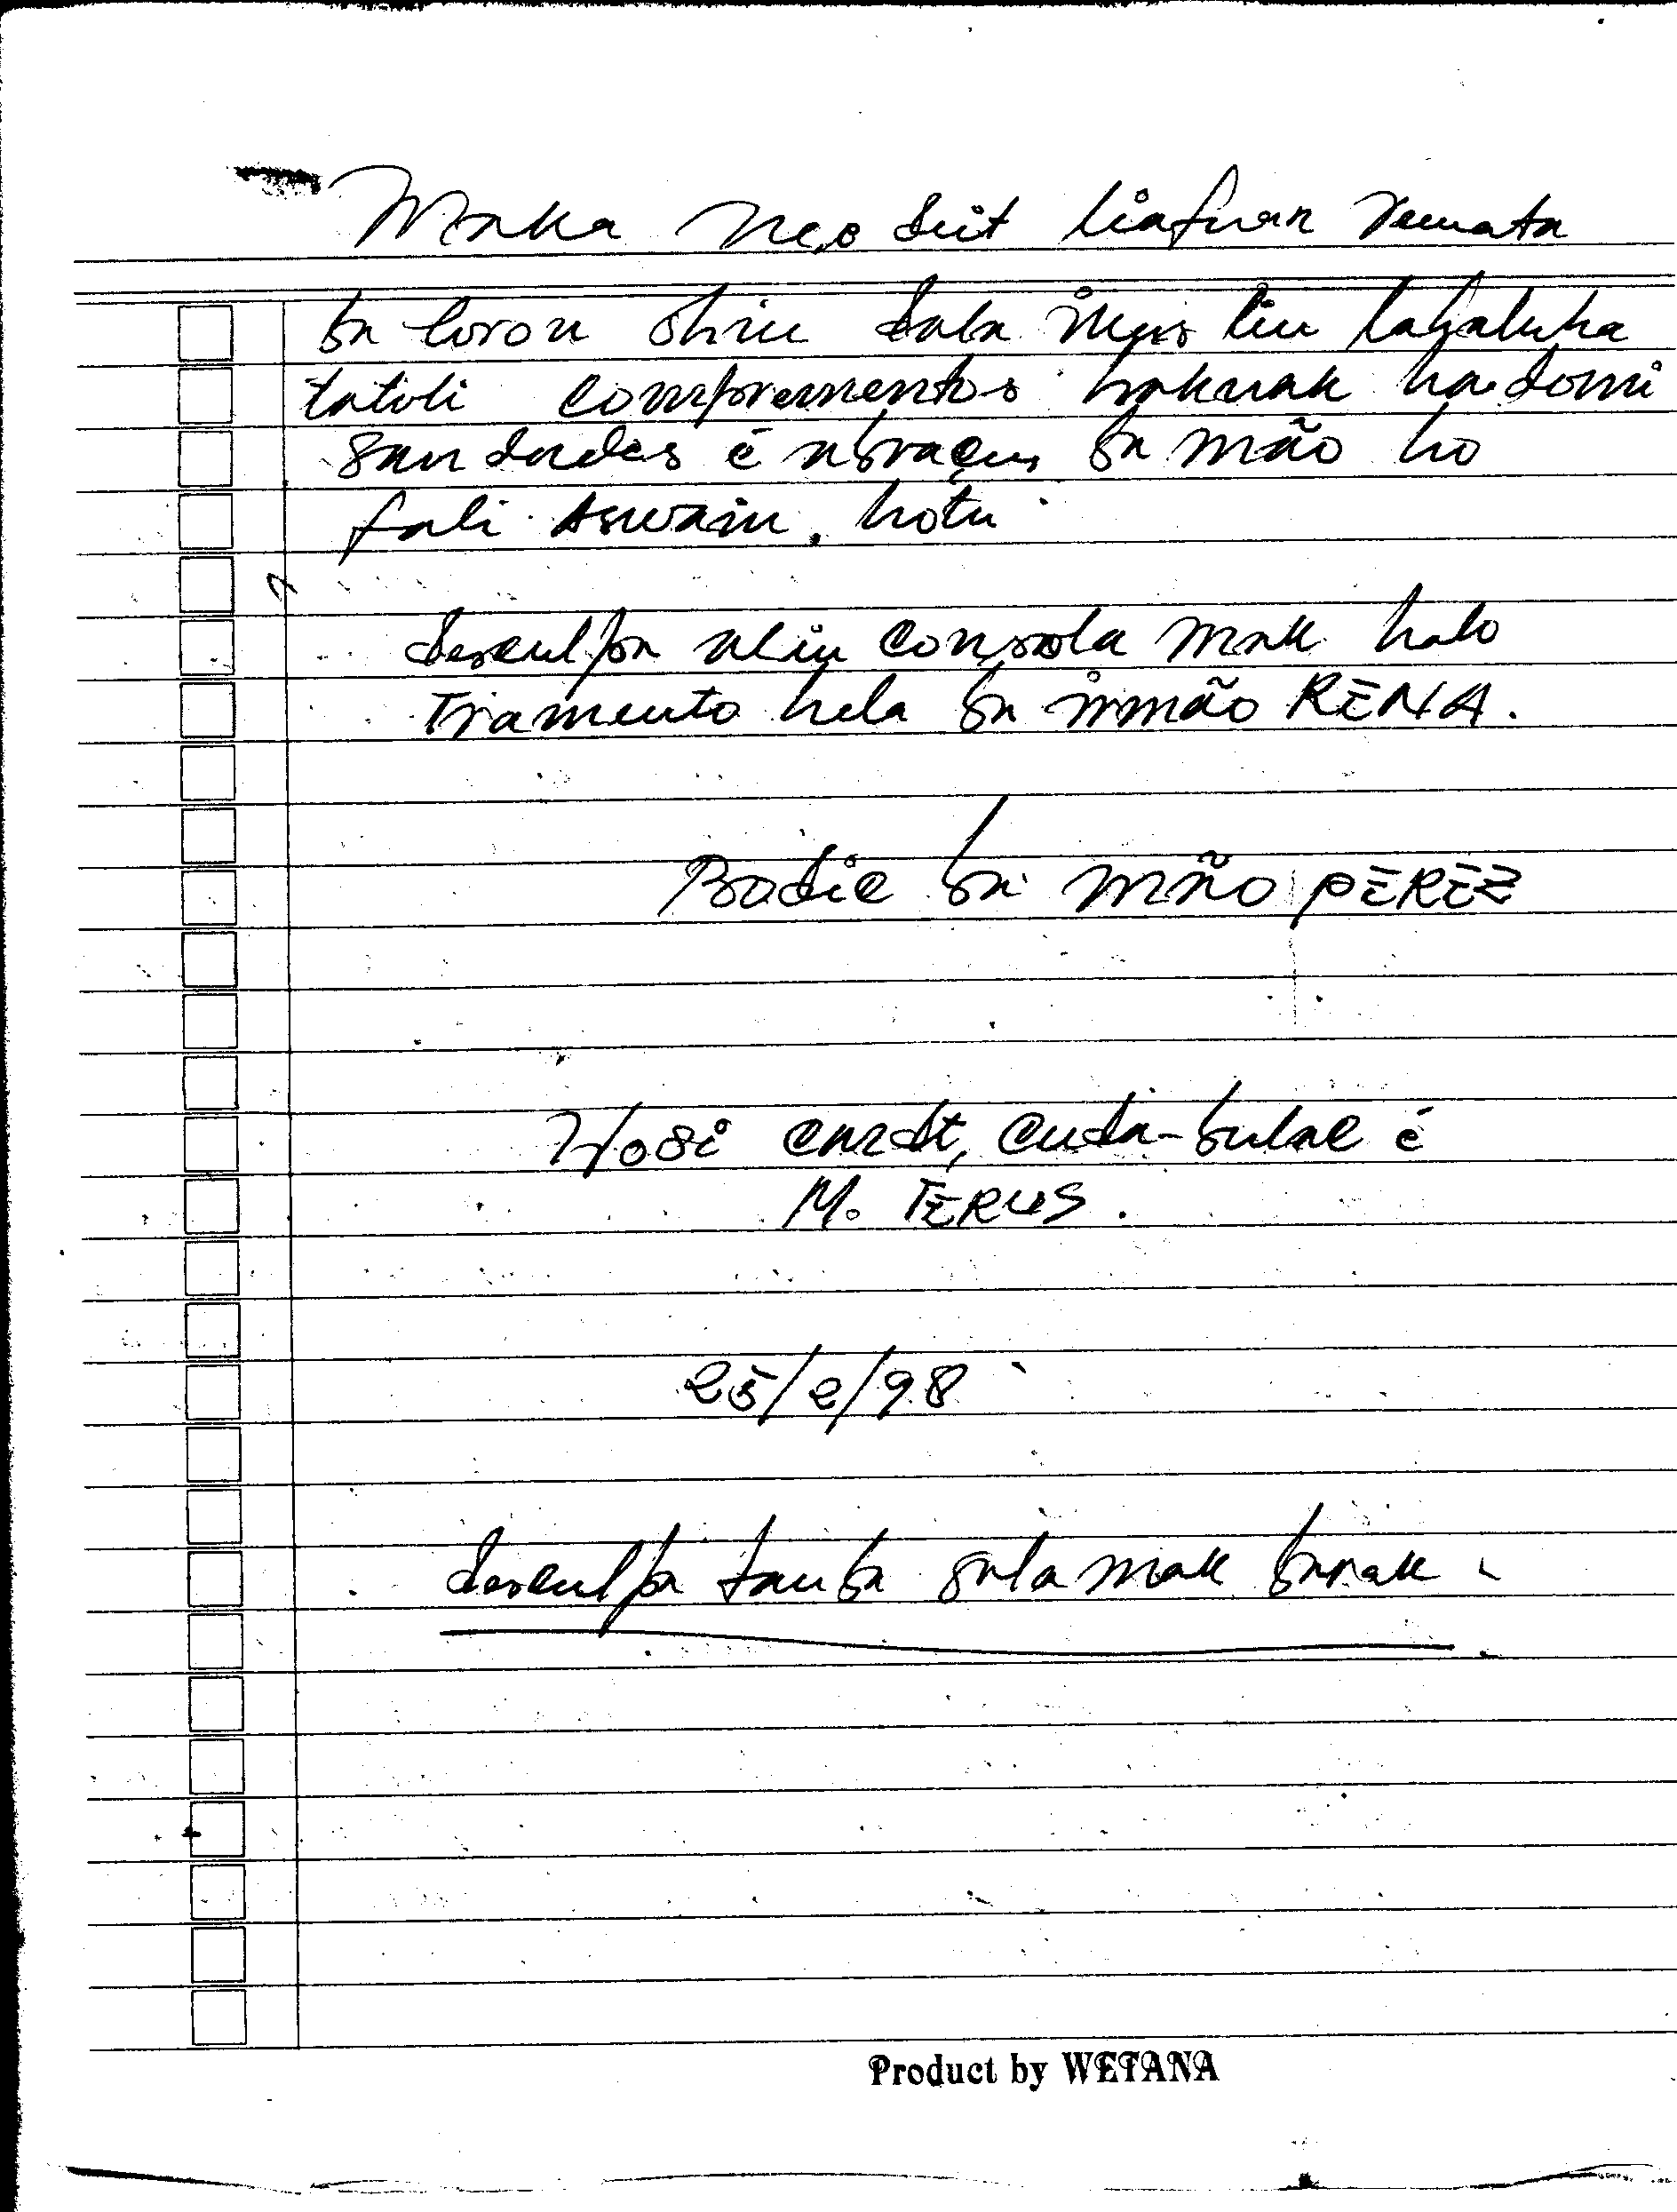 Maka neo deit liafuan remata
ba loron ohin dala imus liu lahaluha
tatoli comprementos hakuak hadomi
saudades é abraçus ba mão ho
fali Aswain. hotu
desculpa aliu consola mak halo
Tramento hela ba irmão RENA.
Bodic ba mão PEREZ
Hosi cazdt, Cuda-bulac é
M. TERUS.
25/2/98
desculpa tamba sala mak barak.
Product by WETANA